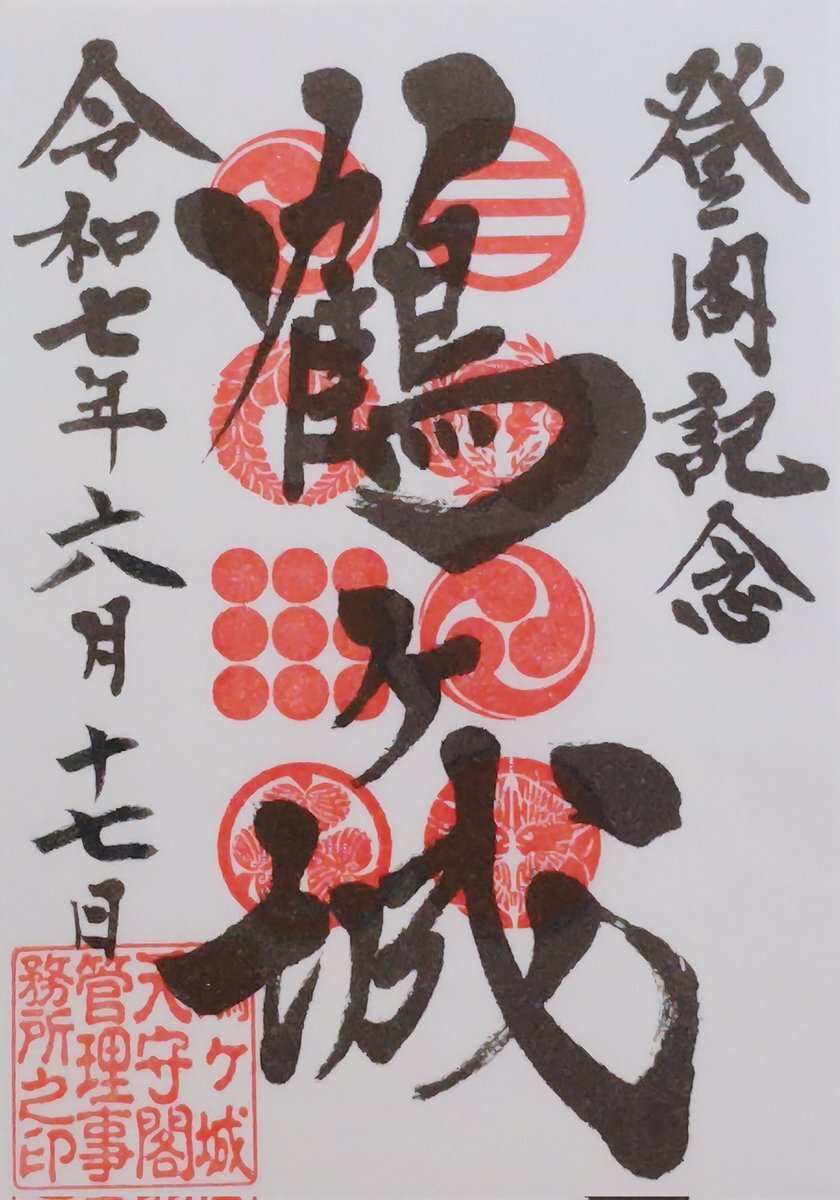 登閣記念
鶴ヶ城
令和七年六月十七日
鶴ヶ城
天守閣
管理事
務所之印